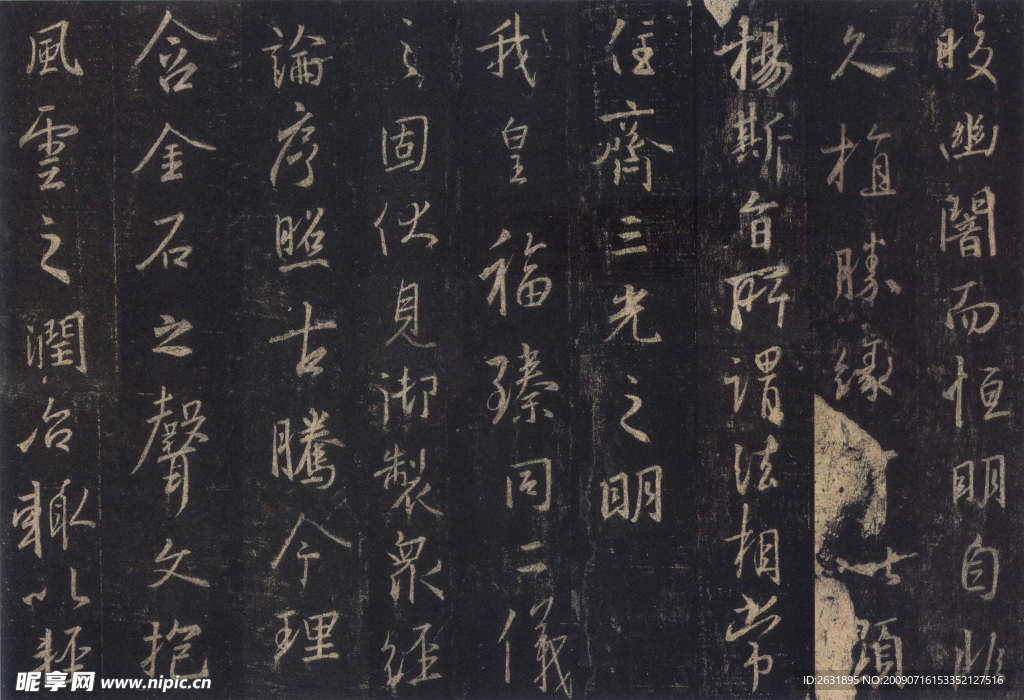 皎幽闇而恒明自非
久植勝緣以顯
揚斯旨所謂法相常
住齊三光之明
我皇福臻同二儀
之固伏見御製眾經
論序照古騰今理
含金石之聲文抱
風雲之潤治輒以輕
昵享网 www.nipic.cn
ID:2631895 NO:20090716153352127516